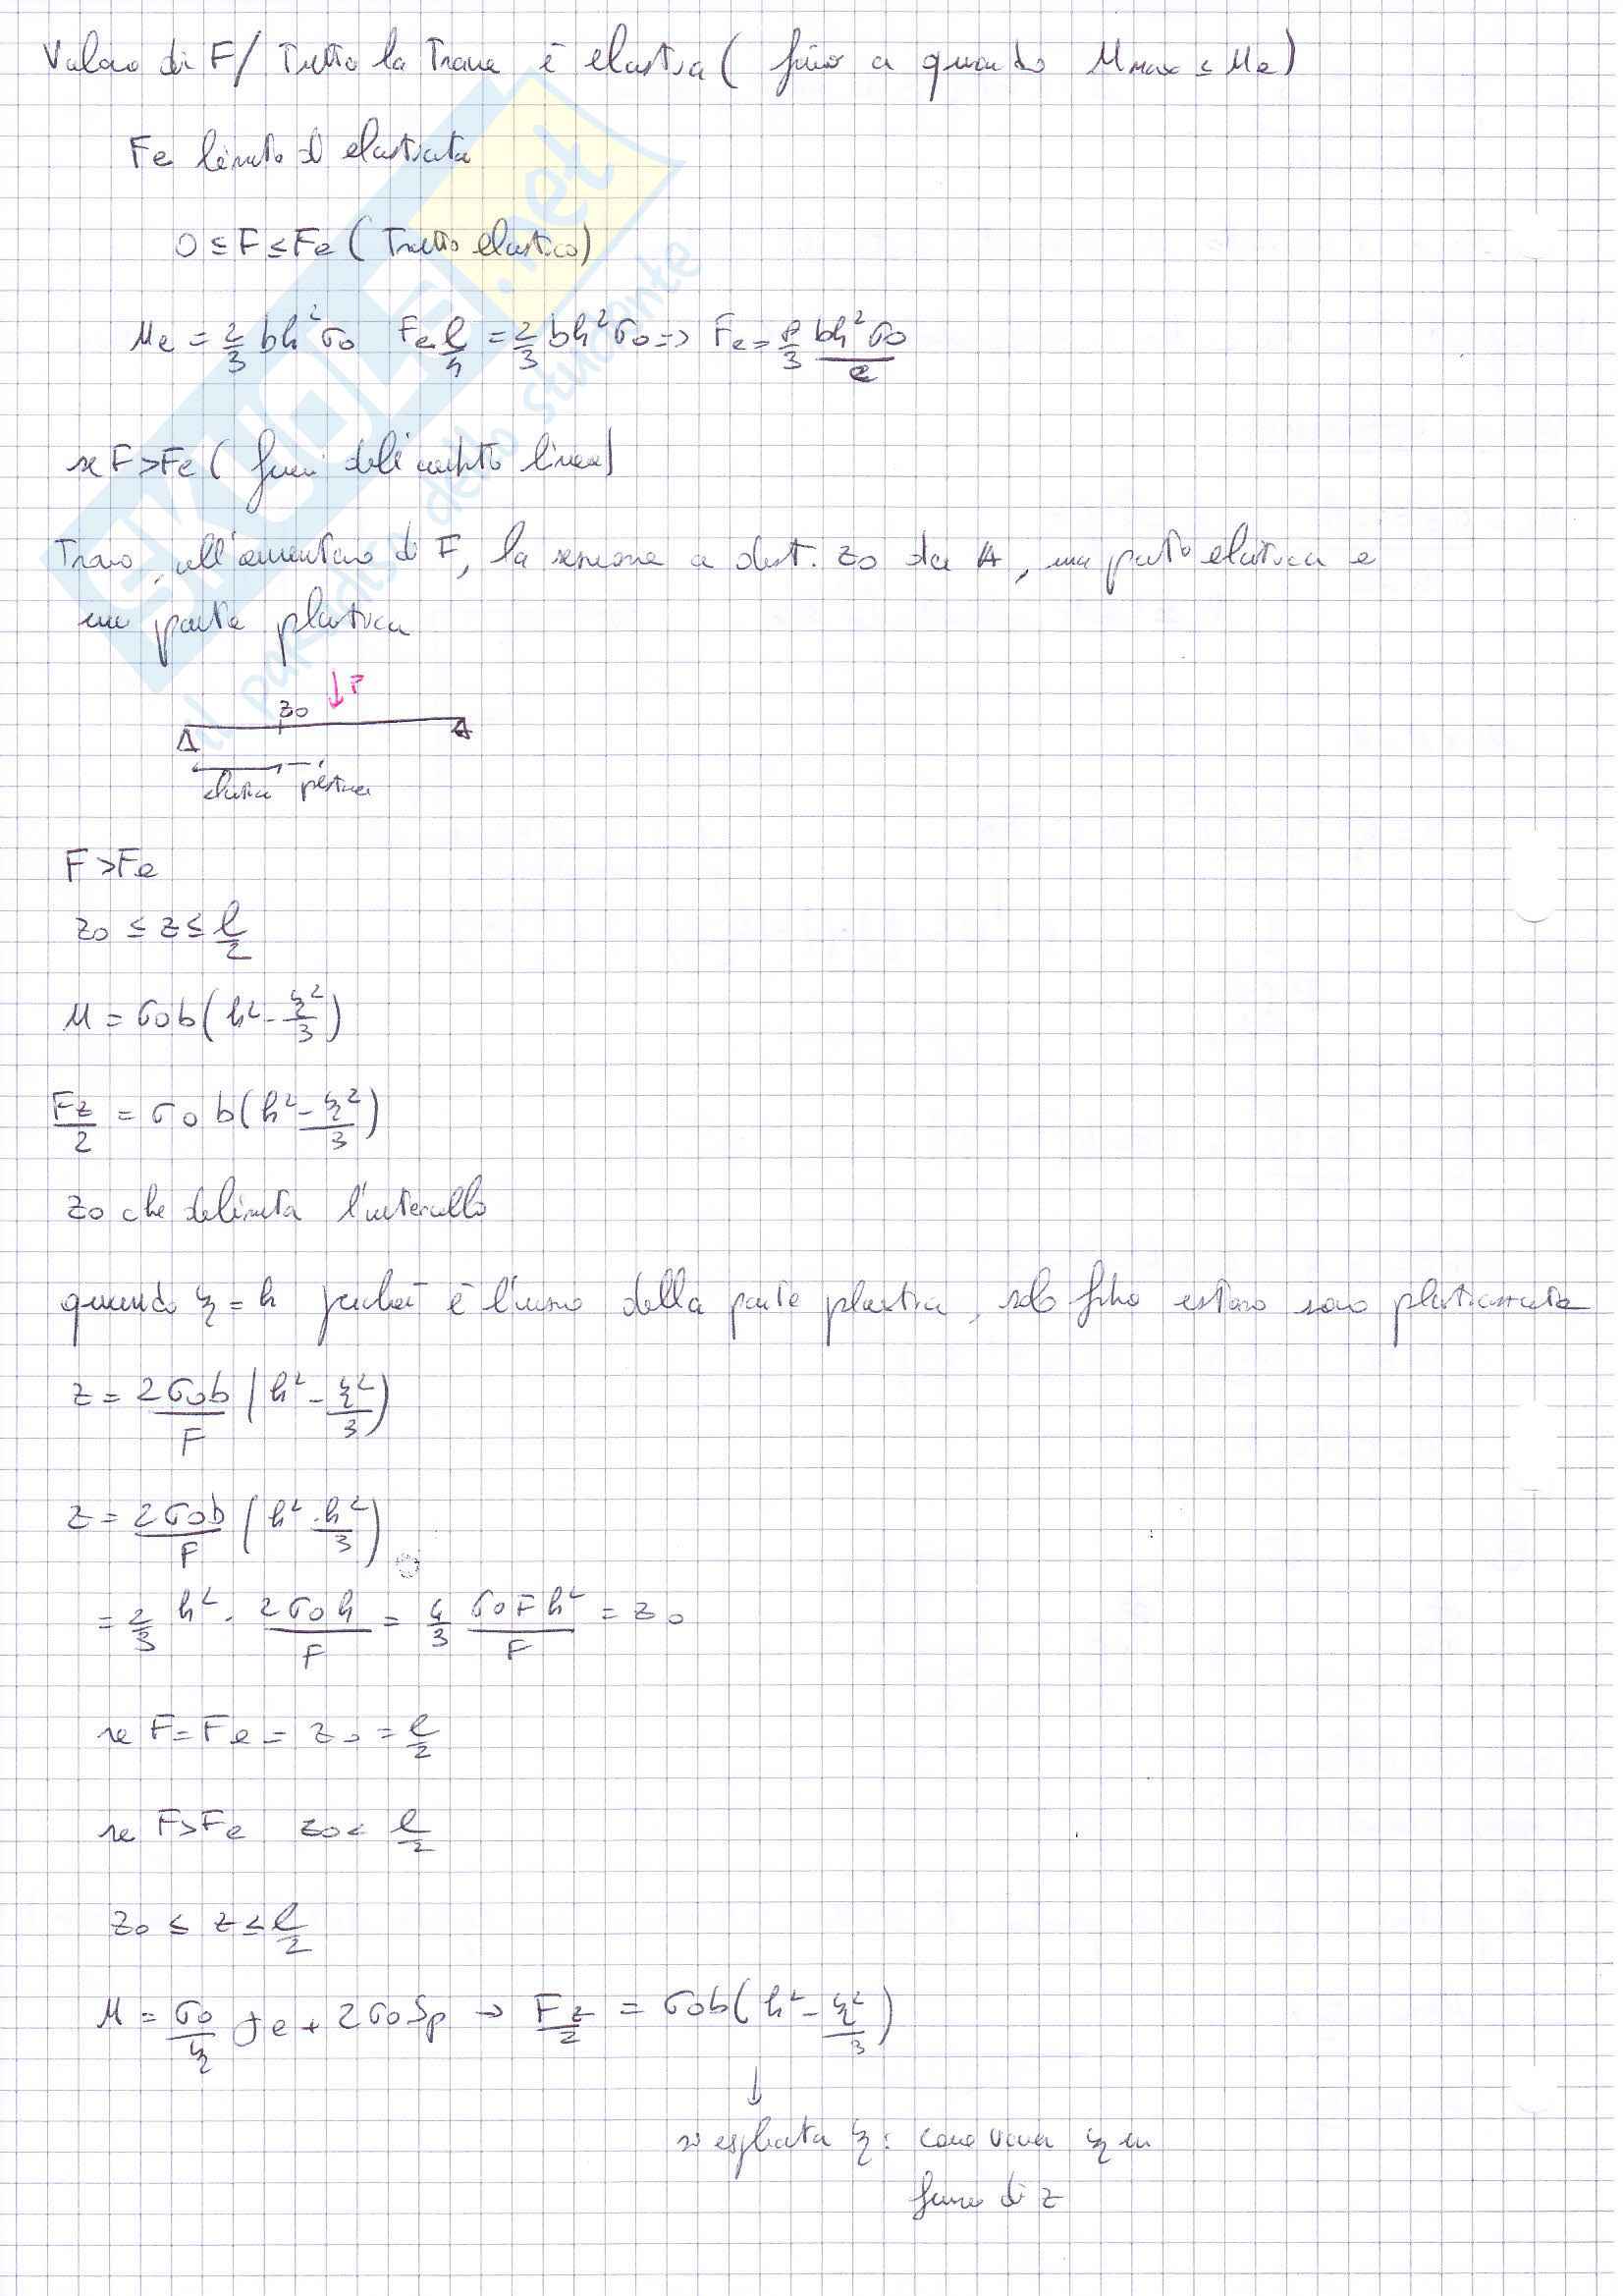 Valore di F/ Tutta la Trave è elastica ( fino a quando Mmax ≤ Me)
Fe limite di elasticità
0 ≤ F ≤ Fe ( Tratto elastico)
Me = 2/3 bh²σ0 Fe l/4 = 2/3 bh²σ0 => Fe = 8/3 bh²σ0/l
se F>Fe ( fuori dall' lineare)
Trovo, all'aumentare di F, la sezione a dist. z0 da A, una parte elastica e
una parte plastica
F
z0
elastica plastica
F>Fe
z0 ≤ z ≤ l/2
M = σ0b(h² - ξ²/3)
Fz/2 = σ0 b(h² - ξ²/3)
z0 che delimita l'intervallo
quando ξ = h perché è l'inizio della parte plastica, solo fibre estreme sono plasticizzate
z = 2σ0b/F (h² - ξ²/3)
z = 2σ0b/F (h² - h²/3)
= 2/3 h² · 2σ0h/F = 4/3 σ0Fh²/F = z0
se F = Fe = z0 = l/2
se F>Fe z0 < l/2
z0 ≤ z ≤ l/2
M = σ0/ξ Je + 2σ0Sp → Fz/2 = σ0b(h² - ξ²/3)
↓
si esplicita ξ: come varia ξ in
funz di z
SKUOLA.net
il paradiso dello studente